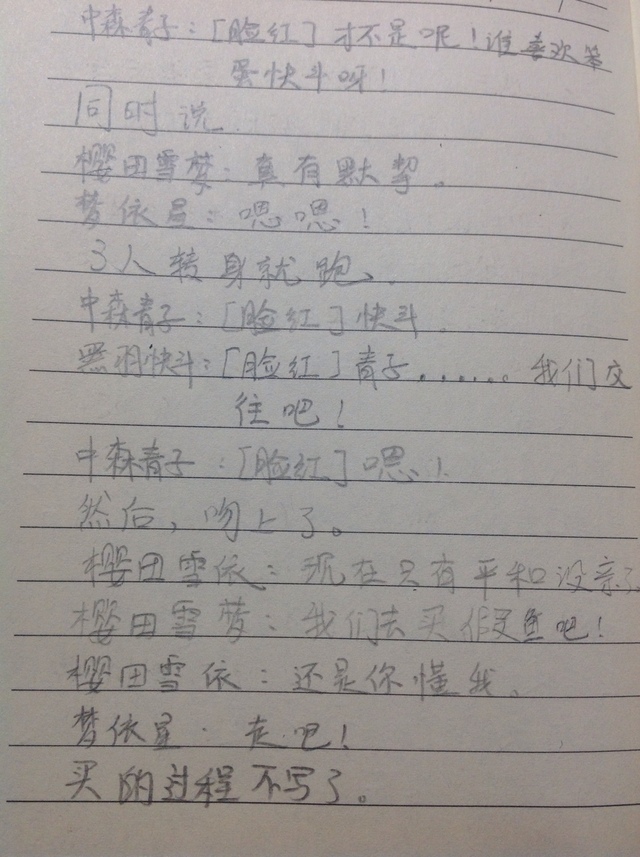 中森青子：[脸红]才不是呢！谁喜欢笨
蛋快斗呀！
同时说
樱田雪梦：真有默挈。
梦依星：嗯嗯！
3人转身就跑、
中森青子：[脸红]快斗.
黑羽快斗：[脸红]青子......。我们交
往吧！
中森青子：[脸红]嗯！
然后，吻上了。
樱田雪依：现在只有平和没亲了
樱田雪梦：我们去买假鱼吧！
樱田雪依：还是你懂我。
梦依星：走吧！
买的过程不写了。